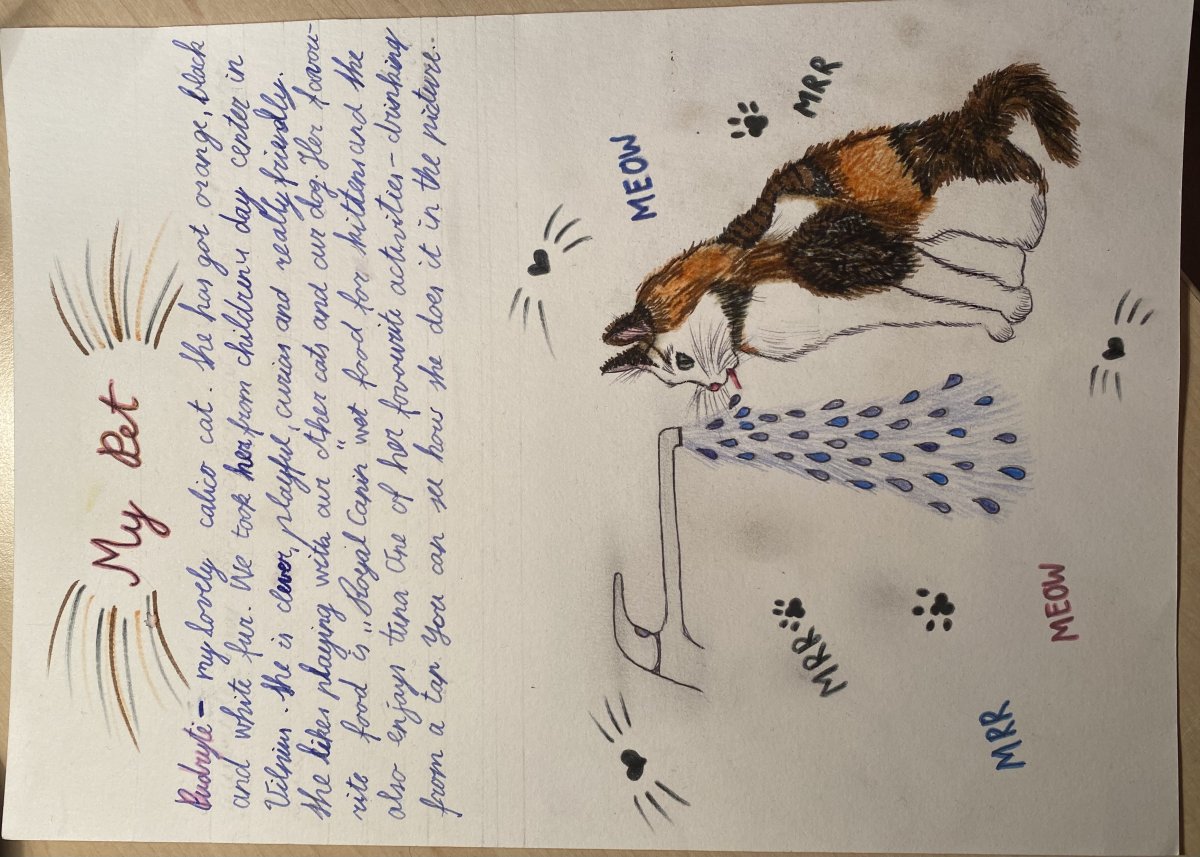 My Pet
Pudrytė – my lovely calico cat. She has got orange, black
and white fur. We took her from children's day center in
Vilnius. She is clever, playful, curius and really friendly.
She likes playing with our other cats and our dog. Her favou-
rite food is „Royal Canin" wet food for kittens and she
also enjoys tuna. One of her favourite activities – drinking
from a tap. You can see how she does it in the picture..
MEOW
MRR
MRR
MRR
MEOW